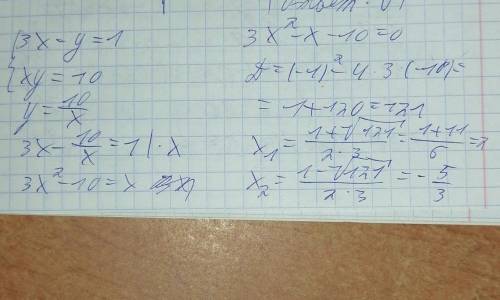 {3x - y = 1
{xy = 10
y = 10/x
3x - 10/x = 1 | · x
3x² - 10 = x
3x² - x - 10 = 0
D = (-1)² - 4 · 3 · (-10) =
= 1 + 120 = 121
x₁ = (1 + √121)/(2 · 3) = (1 + 11)/6 = 2
x₂ = (1 - √121)/(2 · 3) = - 5/3